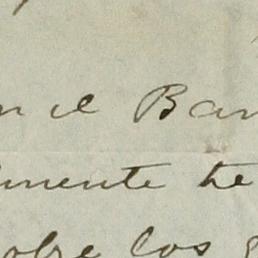 n el Ban
mente he
sobre los